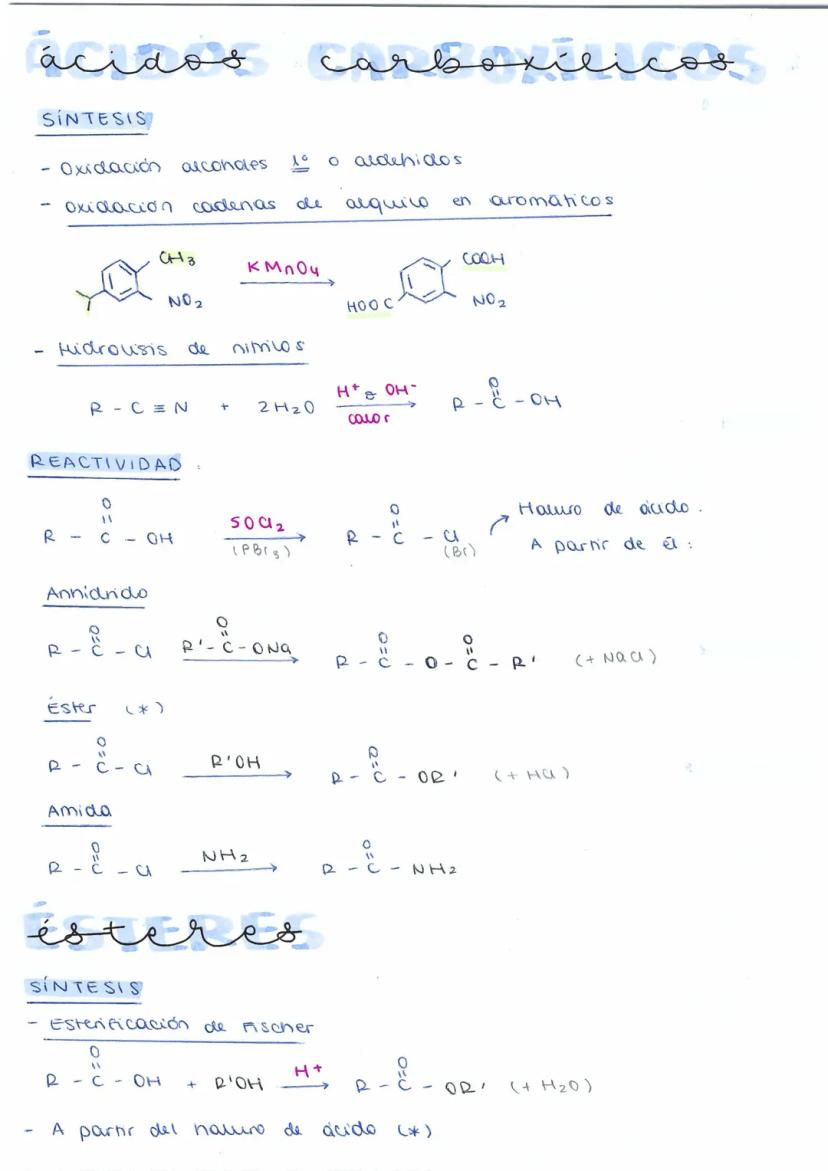 ácidos carboxílicos
SÍNTESIS
- Oxidación alcoholes 1º o aldehidos
- oxidación cadenas de alquilo en aromáticos
CH3 KMnO4 COOH
NO2 HOOC NO2
- Hidrólisis de nitrilos
R - C ≡ N + 2H2O H+ ó OH- R - C - OH
O
calor
REACTIVIDAD
O O Haluro de ácido.
R - C - OH SOCl2 R - C - Cl A partir de él:
(PBr3) (Br)
Anhidrido
O O O O
R - C - Cl R' - C - ONa R - C - O - C - R' (+ NaCl)
Éster (*)
O O
R - C - Cl R'OH R - C - OR' (+ HCl)
Amida
O O
R - C - Cl NH2 R - C - NH2
ésteres
SÍNTESIS
- Esterificación de Fischer
O O
R - C - OH + R'OH H+ R - C - OR' (+ H2O)
- A partir del haluro de ácido (*)